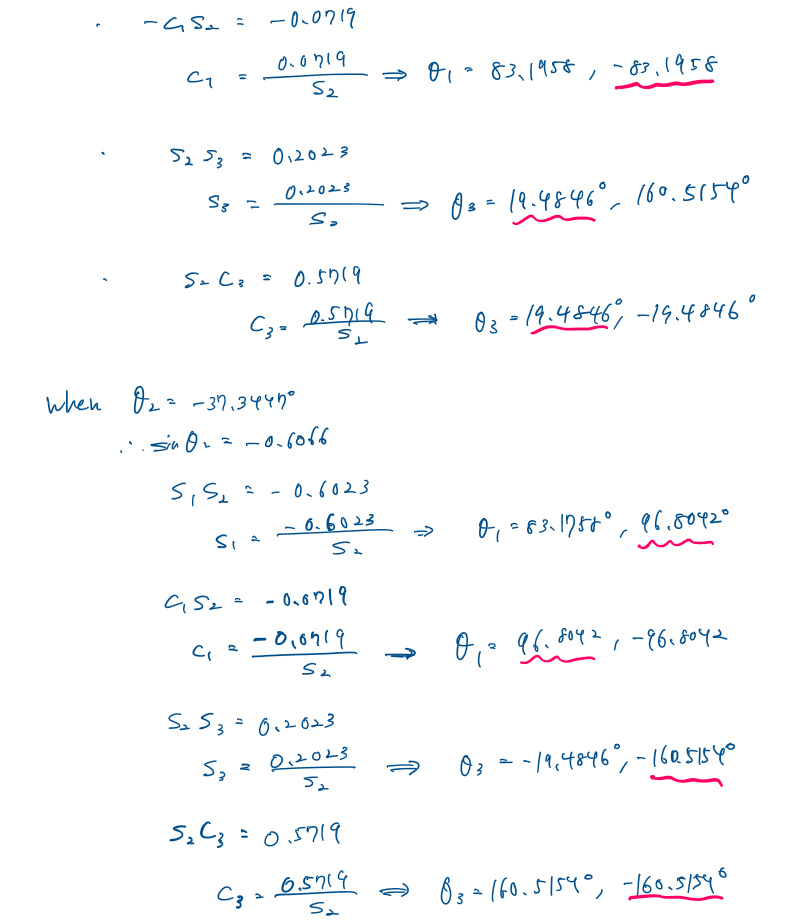 · -C₁S₂ = -0.0719
C₁ = 0.0719/S₂ ⇒ θ₁ = 83.1958, -83.1958
· S₂S₃ = 0.2023
S₃ = 0.2023/S₂ ⇒ θ₃ = 19.4846°, 160.5154°
· S₂C₃ = 0.5719
C₃ = 0.5719/S₂ ⇒ θ₃ = 19.4846°, -19.4846°
When θ₂ = -37.3447°
∴ sin θ₂ = -0.6066
S₁S₂ = -0.6023
S₁ = -0.6023/S₂ ⇒ θ₁ = 83.1958°, 96.8042°
C₁S₂ = -0.0719
C₁ = -0.0719/S₂ → θ₁ = 96.8042, -96.8042
S₂S₃ = 0.2023
S₃ = 0.2023/S₂ ⇒ θ₃ = -19.4846°, -160.5154°
S₂C₃ = 0.5719
C₃ = 0.5719/S₂ ⇒ θ₃ = 160.5154°, -160.5154°